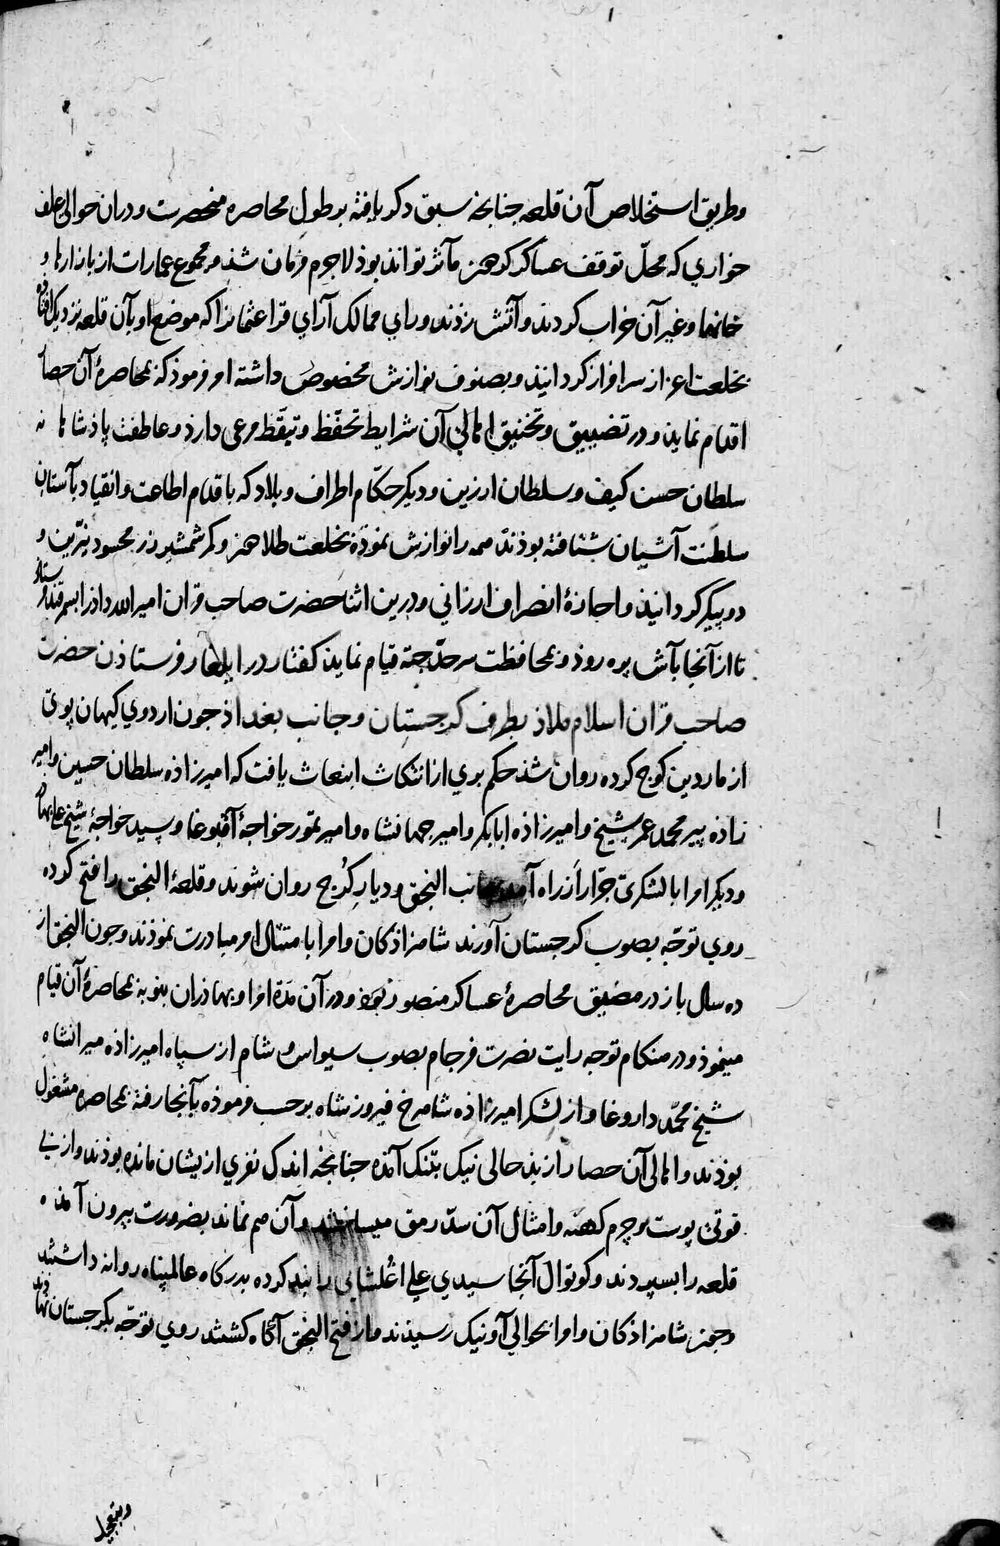 وطریق استخلاص آن قلعه جنانجه سبق ذکر یافته بر طول محاصره منحصرست ودران حوالی علف
خواری که محلّ توقف عساکر کوهن مآثر تواند بوذ لاجرم فرمان شذ ومجموع عمارات از بازارها و
خانها وغیر آن خراب کردند وآتش زدند ورای ممالک آرای قرا عثمانرا که موضع او بآن قلعه نزدیک افتاده
بخلعت اعزاز سرافراز کردانیذ وبصنوف نوازش مخصوص داشته امر فرموذ که بمحاصرهٔ آن حصار
اقدام نماید ودر تضییق وتخنیق اهالی آن شرایط تحفّظ وتیقّظ مرعی دارذ وعاطفت پاذشاهانه
سلطان حسن کیف وسلطان ارزین ودیکر حکّام اطراف وبلاد که باقدام اطاعت وانقیاد بآستان
سلطنت آشیان شتافته بوذند همه را نوازش نموذه بخلعت طلا و کمر شمشیر زر محسود نیّرین و
دو پیکر کردانیذ واجازهٔ انصراف ارزانی ودرین اثنا حضرت صاحب قران امیر الله داذرا بسمرقند فرستاد
تا از آنجا بآش بره روذ وبمحافظت سرحدّ جته قیام نماید کفتار در ایلغار فرستاذن حضرت
صاحب قران اسلام ملاذ بطرف کرجستان وجانب بغداذ جون اردوی کیهان پوی
از ماردین کوج کرده روان شذ حکم بری از انتکاث انبعاث یافت که امیرزاذه سلطان حسین وامیر
زاذه پیر محمد عمر شیخ وامیرزاذه ابابکر وامیر جهانشاه وامیر تمور خواجهٔ آقبوغا وسید خواجهٔ شیخ علی بهادر
ودیکر امرا بالشکری جرّار از راه آمد بجانب النجق ودیار کُرج روان شوند وقلعهٔ النجق را فتح کرده
روی توجّه بصوب کرجستان آورند شاهزاذکان وامرا بامتثال امر مبادرت نموذند وجون النجق از
ده سال باز در مضیق محاصرهٔ عساکر منصور بوذ ودر آن مدّة امرا وبهاذران بنوبه بمحاصرهٔ آن قیام
مینموذ ودر هنکام توجه رایت نصرت فرجام بصوب سیواس وشام از سپاه امیرزاذه میرانشاه
شیخ محمّد داروغا واز لشکر امیرزاذه شاهرخ فیروز شاه برحسب فرموذه بآنجا رفته بمحاصره مشغول
بوذند واهالی آن حصار از بذ حالی نیک بتنک آمذه جنانجه اندک نفری ازیشان مانده بوذند واز بی
قوتی پوست وچرم کهنه وامثال آن سدّ رمق میساختند وآن هم نماند بضرورت بیرون آمذه
قلعه را بسپردند وکوتوال آنجا سیدی علی اغلشایی را بند کرده بدرکاه عالمپناه روانه داشتند
وجون شاهزاذکان وامرا بحوالی آونیک رسیذند واز فتح النجق آکاه کشتند روی توجّه بکرجستان نهادند
وبتعجیل